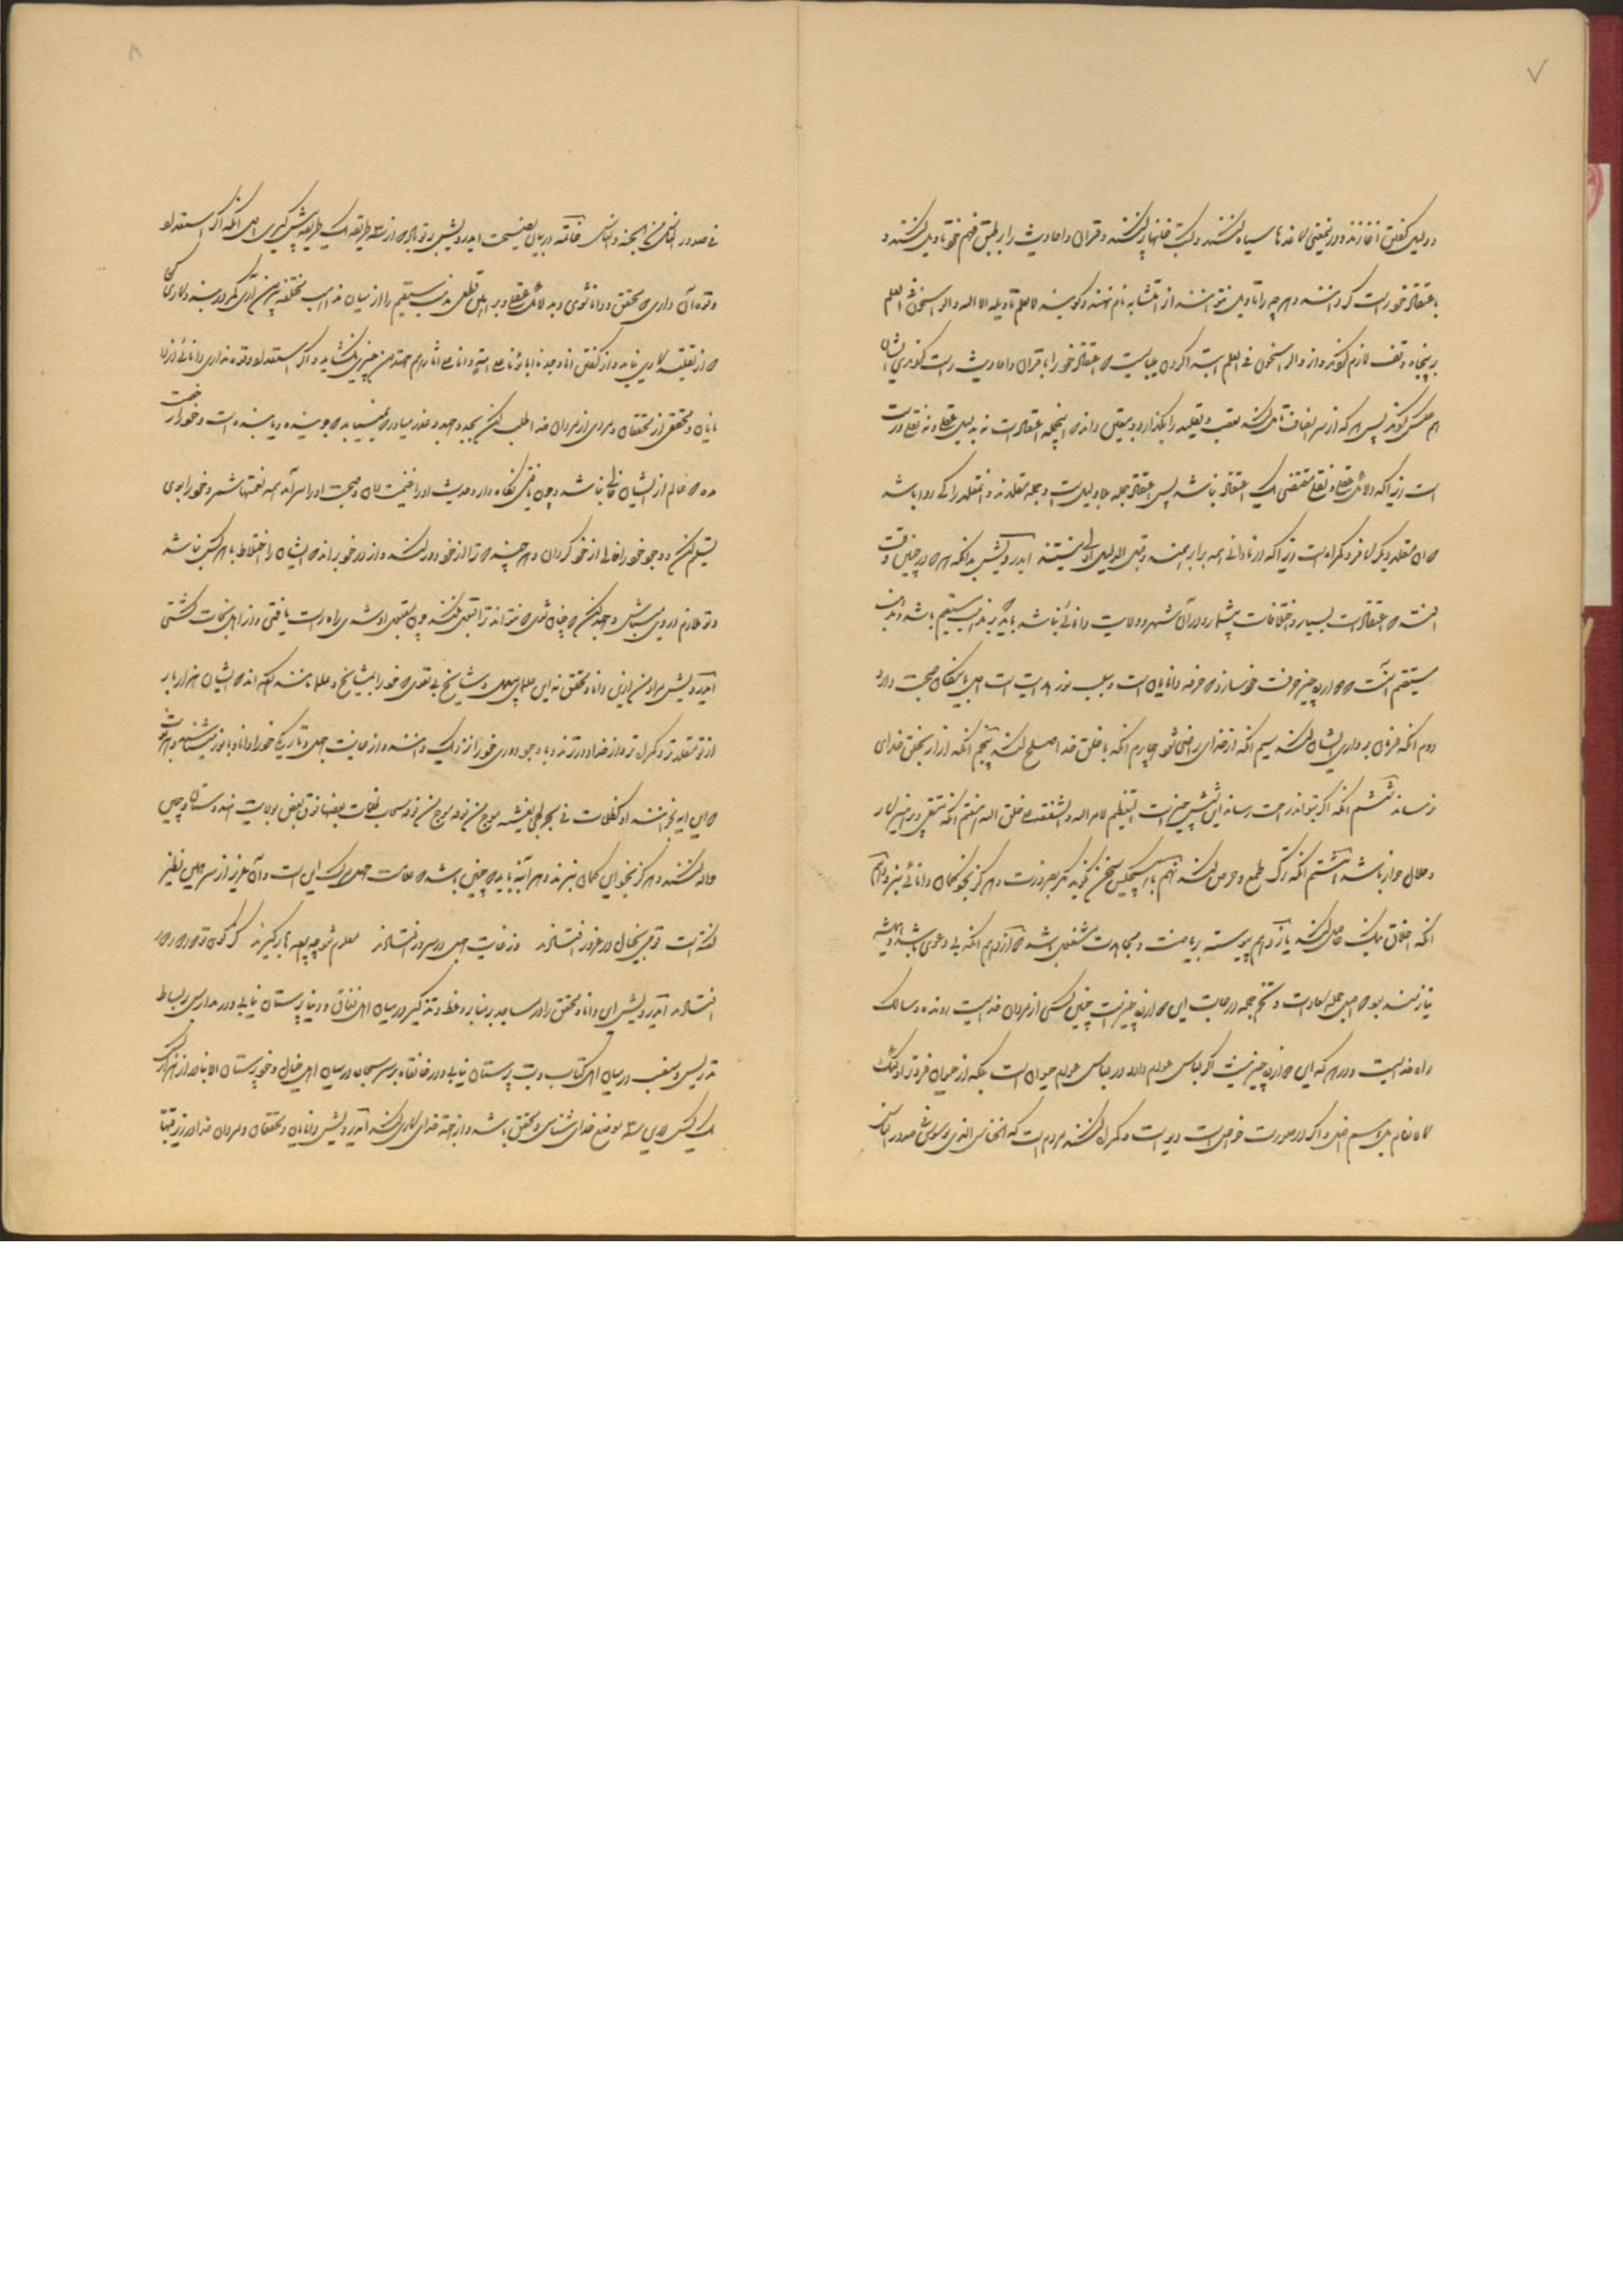 ۷
و دلیل گفتن آغازند و در نمعنی کاغذها سیاه کنند و کتب خانها پر کنند و قران و احادیث را بر طبق فهم خود تاویل کنند و
باعتقاد خود راست گردانند و هر چه را تاویل نتوانند از متشابه نام نهند و گویند لا یعلم تاویله الا الله و الراسخون فی العلم
بر پنجا وقف لازم گویند و از و الراسخون فی العلم ابتدا کردن می‌بایست که اعتقاد خود را با قران و احادیث راست کنند نی ایشان
هم عکس کنند پس هر که از سر انصاف تامل کند تعصب و تقلید را بگذارد و بیقین داند که اینجمله اعتقادات نه بدلیل عقلی و نه نقلی درست
است زیرا که دلائل عقلی و نقلی مقتضی یک اعتقاد باشد پس اعتقاد جمله بی‌دلیل است و جمله مقلدند و مقلد را کی روا باشد
که آن مقلد دیگر کافر و گمراه است زیرا که در نادانی همه برابر همند و قبل الدلیل اولی نیستند ایدرویش بدانکه هر که در چنین وقت
افتد که اعتقادات بسیار و اختلافات بیشمار و در آن شهر و ولایت دانائی نباشد باید بر مذهب مستقیم باشد و مذهب
مستقیم آنست که ده چیز حرفت خود سازد که حرفه دانایان است و سبب نور هدایت است اول با نیکان صحبت دارد
دوم انکه فرمان برداری ایشان کند سیم انکه از خدای راضی شود چهارم انکه با خلق خدا صلح کند پنجم انکه ازار بخلق خدای
نرساند ششم انکه اگر بتواند راحت رساند این شش چیز است التعظیم لامر الله و الشفقة علی خلق الله هفتم انکه متقی و پرهیزکار
و حلال خوار باشد هشتم انکه ترک طمع و حرص کند نهم با هیچکس سخن نگوید مگر بضرورت و هرگز بخود گمان دانائی نبرد دهم
انکه اخلاق نیک حاصل کند یازدهم پیوسته بریاضت و مجاهدت مشغول باشد دوازدهم انکه بی دعوی باشد و همیشه
نیازمند بود که اصل جمله سعادت و تخم جمله درجات این دوازده چیز است چنین کسی از مردان خداست رونده و سالک
راه خداست و در هر که این دوازده چیز نیست اگر لباس عوام دارد در لباس عوام حیوان است بلکه از حیوان فروتر اولئک
کالانعام بل هم اضل و اگر در صورت خواص است دیو است و گمراه کننده مردم است که الخناس الذی یوسوس فی صدور الناس
۸
فی صدور الناس من الجنة و الناس خاتمه در بیان نصیحت ایدرویش بر تو باد که از سه طریقه یک طریقه پیش گیری اول انکه اگر استعداد
و قوة آن داری که محقق و دانا شوی و بدلائل عقلی و براهین قطعی مذهب مستقیم را از میان مذاهب مختلفه بیرون آری کمر در بند و کاری کن
که از تقلید کاری نیاید و از گفتن انا وجدنا اباءنا علی امة و انا علی اثارهم مقتدون چیزی نگشاید و اگر استعداد و قوة نداری دانائی از
دانایان و محققی از محققان و مردی از مردان خدا طلب کن بجد و جهد و عذر میاور که نمییابم که جوینده یابنده است و خود را زحمت
مده که عالم از ایشان خالی نباشد و چون یافتی نگاه دار و حدیث او را غنیمت دان و صحبت او را سرآمد همه نعمتها شمر و خود را بوی
تسلیم کن و وجود خود را خالی از خود گردان و هر چیز که ترا از خود دور کند و از در خود براند که ایشان را اختلاط با هر کس نباشد
و تو ملازم در وی میباش و جهد کن که چنان شوی که بتواند ترا قبول کند چون مقبول او شدی راه راست یافتی و از اهل نجات گشتی
ایدرویش مراد من ازین دانا و محقق نه این علمای بی‌عمل و مشایخ بی تقوی که خود را مشایخ و علما نام نهاده‌اند که ایشان هزار بار
از تو مقلدتر و گمراه‌تر و از خدا دورترند و با وجود دوری خود را نزدیک دانند و از غایت جهل و تاریکی خود را دانا و با نور شناسند
که این ایه بخوانند او کظلمات فی بحر لجی یغشیه موج من فوقه موج من فوقه سحاب ظلمات بعضها فوق بعض بولایت هند و ستان و چین
حواله کنند و هرگز بخود این گمان نبرند و هر آینه باید که چنین باشد که علامت جهل مرکب این است و آن عزیز از سر همین نظیر
گفته است قومی بخیال در غرور افتادند وز غایت جهل در سرور افتادند معلوم شود چو پرده‌ها برگیرند کز کوی تو دور دور دور
افتادند ایدرویش این دانا و محقق را در مساجد بر منابر وعظ و تذکیر در میان اهل نفاق و دنیا پرستان نیابی و در مدارس بر بساط
تدریس و منصب در میان اهل کتاب و بت پرستان نیابی و در خانقاه بر سر سجاده در میان اهل خیال و خود پرستان الا نادر از هزار
یک کس درین سه موضع خدای شناس و محقق باشد و از جهة خدای کاری کند ایدرویش دانایان و محققان و مردان خدا در زیر قبها